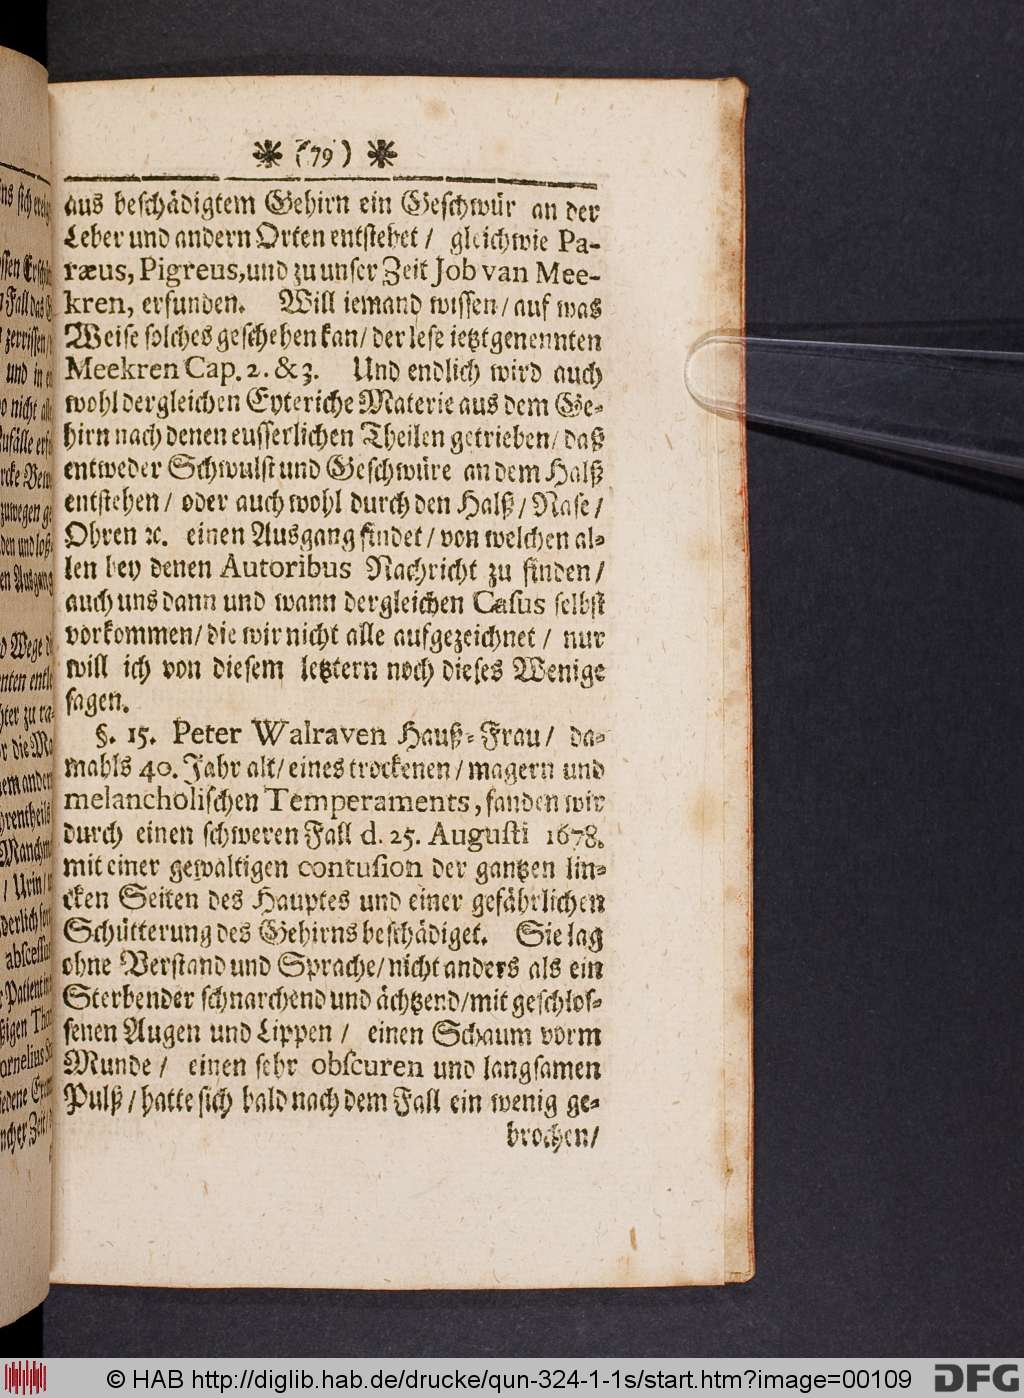 ❋ (79) ❋
aus beschädigtem Gehirn ein Geschwür an der
Leber und andern Orten entstehet / gleichwie Pa-
ræus, Pigreus, und zu unser Zeit Job van Mee-
kren, erfunden. Will iemand wissen / auf was
Weise solches geschehen kan / der lese ietztgenennten
Meekren Cap. 2. & 3. Und endlich wird auch
wohl dergleichen Eyteriche Materie aus dem Ge-
hirn nach denen eusserlichen Theilen getrieben / daß
entweder Schwulst und Geschwüre an dem Halß
entstehen / oder auch wohl durch den Halß / Nase /
Ohren ꝛc. einen Ausgang findet / von welchen al-
len bey denen Autoribus Nachricht zu finden /
auch uns dann und wann dergleichen Casus selbst
vorkommen / die wir nicht alle aufgezeichnet / nur
will ich von diesem letztern noch dieses Wenige
sagen.
§. 15. Peter Walraven Hauß-Frau / da-
mahls 40. Jahr alt / eines trockenen / magern und
melancholischen Temperaments, fanden wir
durch einen schweren Fall d. 25. Augusti 1678.
mit einer gewaltigen contusion der gantzen lin-
cken Seiten des Hauptes und einer gefährlichen
Schütterung des Gehirns beschädiget. Sie lag
ohne Verstand und Sprache / nicht anders als ein
Sterbender schnarchend und ächtzend / mit geschlos-
senen Augen und Lippen / einen Schaum vorm
Munde / einen sehr obscuren und langsamen
Pulß / hatte sich bald nach dem Fall ein wenig ge-
brochen /
© HAB http://diglib.hab.de/drucke/qun-324-1-1s/start.htm?image=00109
DFG